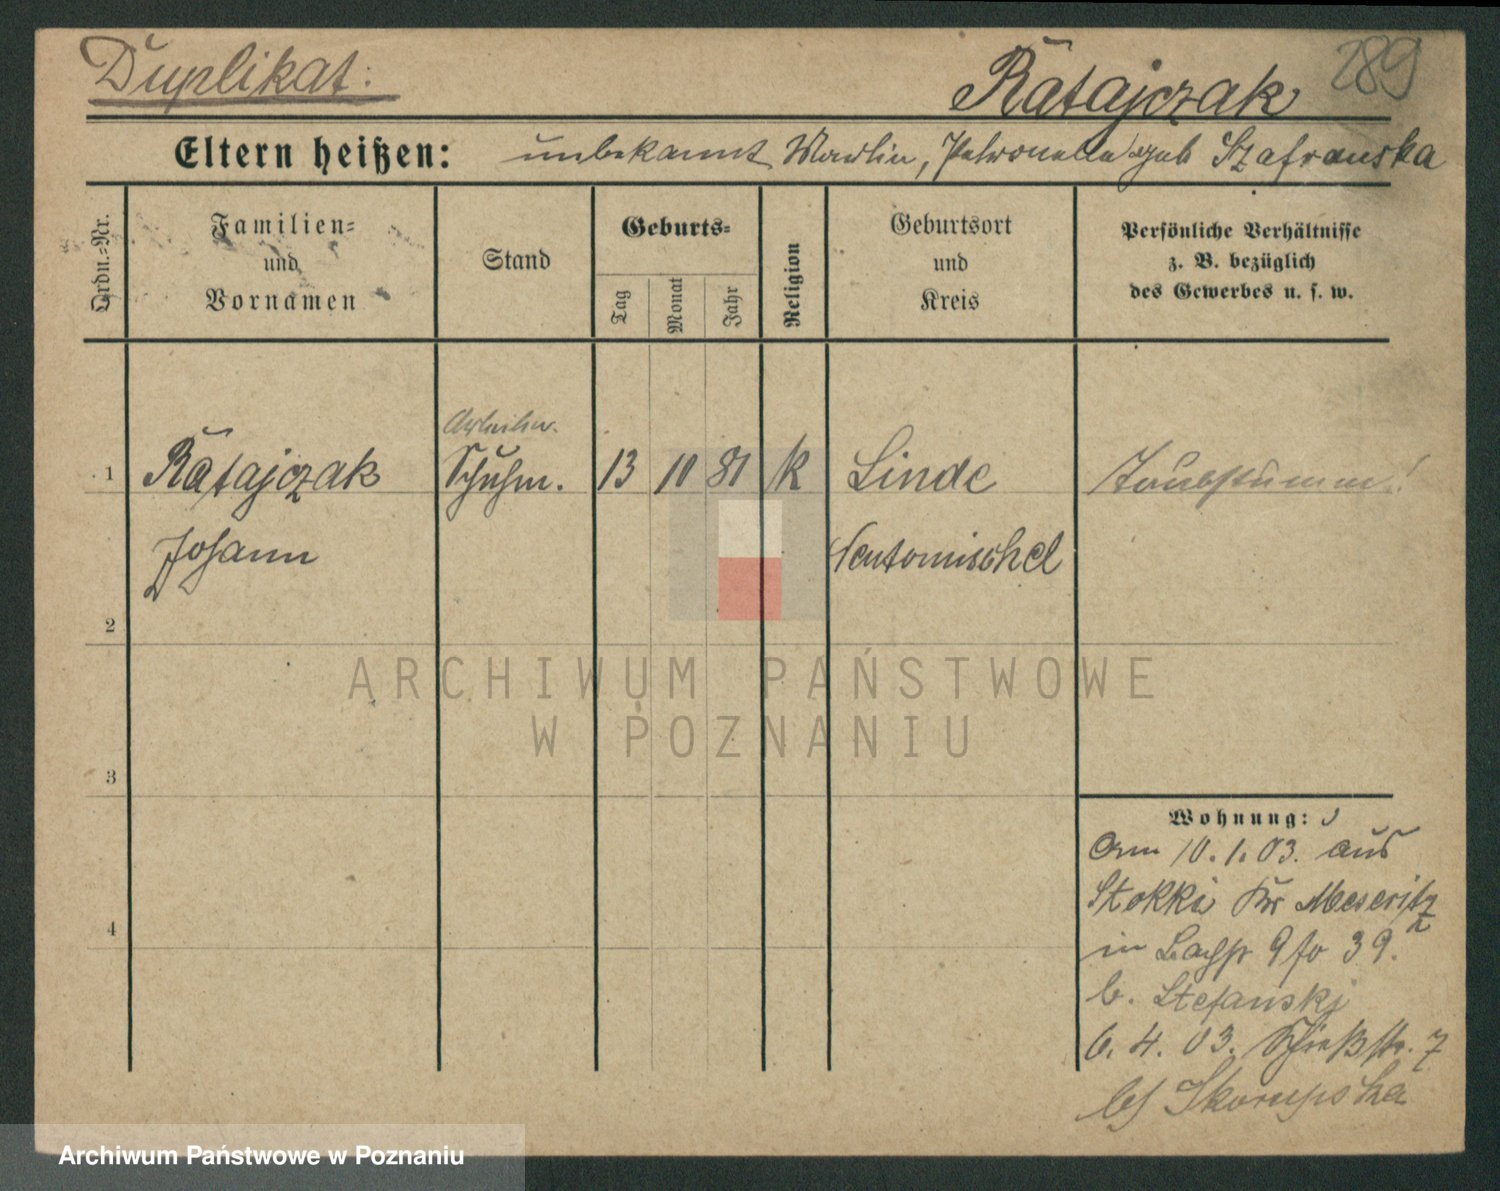 Duplikat:
Ratajczak 289
Eltern heißen: unbekannt Martin, Petronella geb Szafranska
Ordn.-Nr.
Familien-
und
Vornamen
Stand
Geburts-
Tag
Monat
Jahr
Religion
Geburtsort
und
Kreis
Persönliche Verhältnisse
z. B. bezüglich
des Gewerbes u. s. w.
Arbeiter.
1 Ratajczak Schuhm. 13 10 81 k Linde Taubstumm!
Johann Neutomischel
2
3
4
Wohnung:
Am 10.1.03. aus
Stokki Kr Meseritz
in 39.
b. Stefanski
6.4.03. Schießstr. 7
bei Skorupska
ARCHIWUM PAŃSTWOWE
W POZNANIU
Archiwum Państwowe w Poznaniu